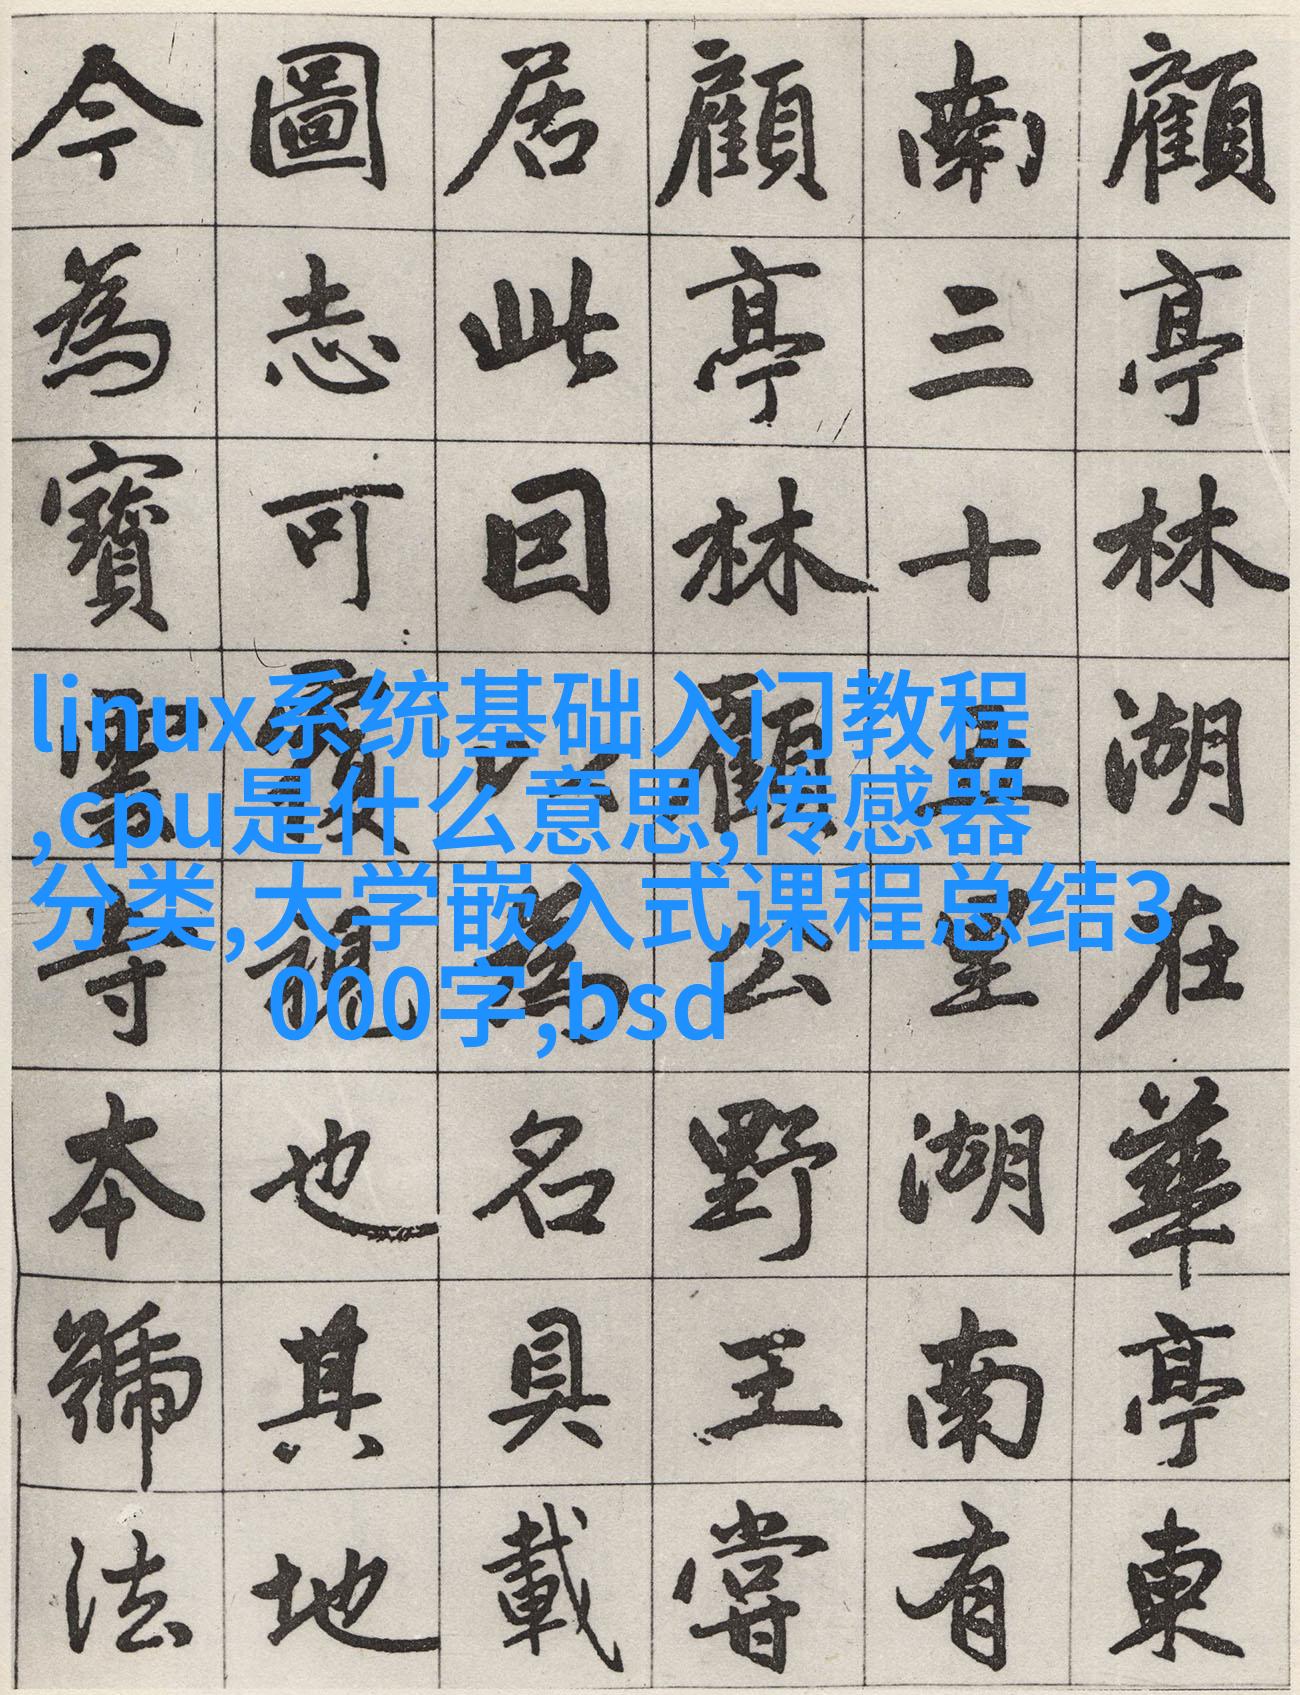 linux系统基础入门教程
,cpu是什么意思,传感器
分类,大学嵌入式课程总结3
000字,bsd
顧亭林湖在華亭東
南三十五里湖南有
顧亭林顧公野王嘗
居此囙以為名具載
圖志可覆視也其地
今為寶雲寺本號法